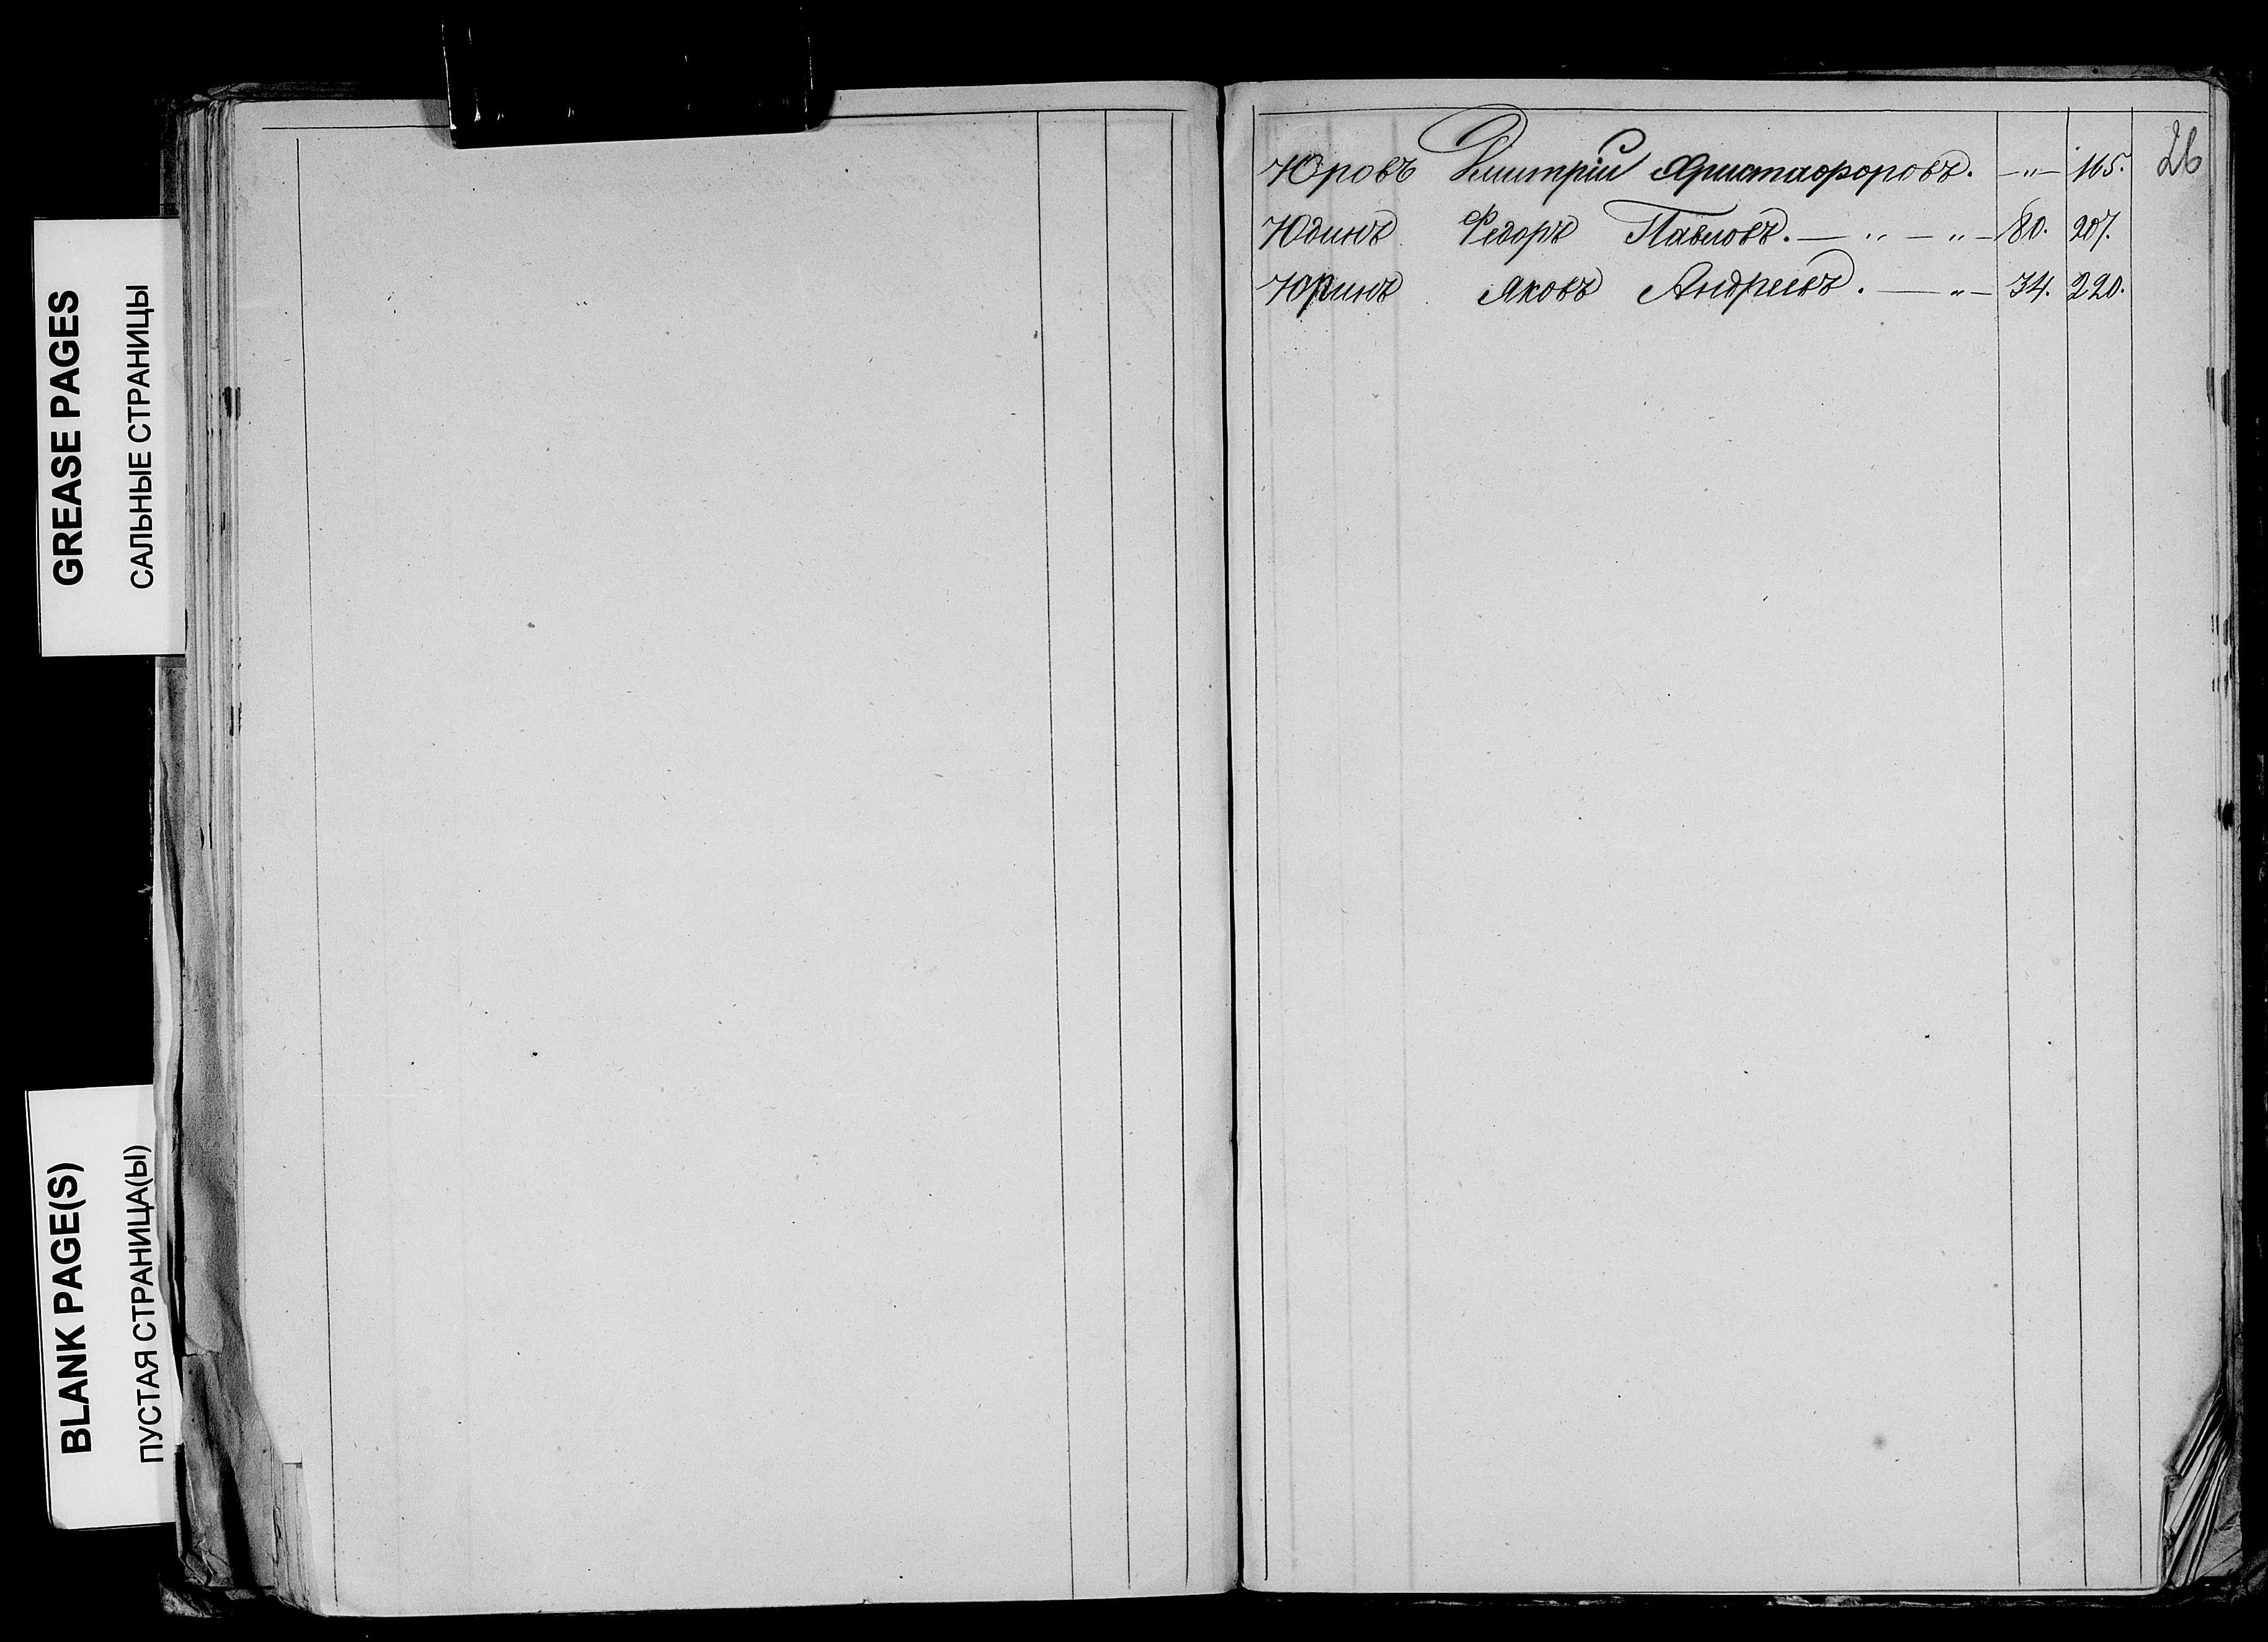 GREASE PAGES
САЛЬНЫЕ СТРАНИЦЫ
BLANK PAGE(S)
ПУСТАЯ СТРАНИЦА(Ы)
26
Юровъ Дмитрій Христофоровъ. —„— 165.
Юдинъ Федоръ Павловъ. — „ — „ — 80. 207.
Юринъ Яковъ Андреевъ. — „ — 34. 220.